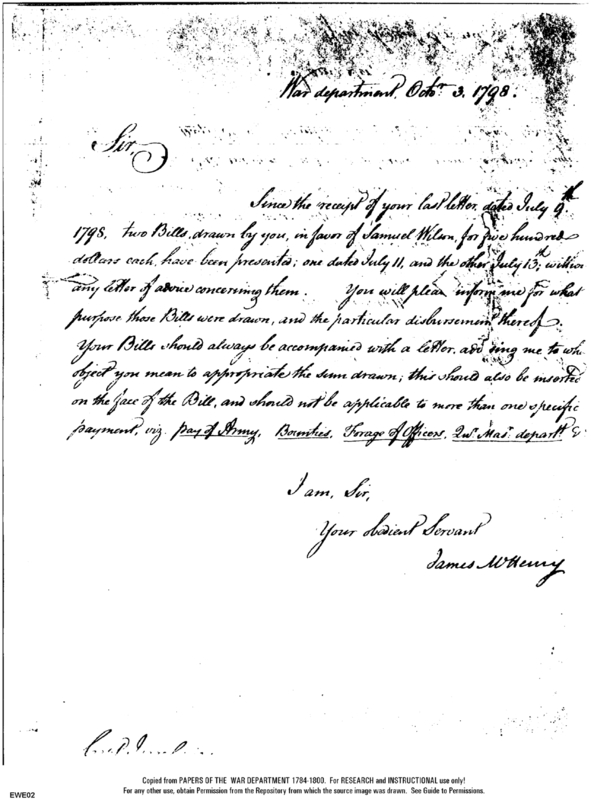 War department, Octor. 3. 1798.
Sir,
Since the receipt of your last letter, dated July 9th
1798, two Bills, drawn by you, in favor of Samuel Wilson, for five hundred
dollars each, have been presented; one dated July 11, and the other July 13th, without
any letter of advice concerning them. You will please inform me for what
purpose those Bills were drawn, and the particular disbursement thereof.
Your Bills should always be accompanied with a letter, advising me to wh
object you mean to appropriate the sum drawn; this should also be inserted
on the face of the Bill, and should not be applicable to more than one specific
payment, viz. Pay of Army, Bounties, Forage of Officers, Qur. Mas. departt. &
I am, Sir,
Your obedient Servant
James McHenry
Copied from PAPERS OF THE WAR DEPARTMENT 1784-1800. For RESEARCH and INSTRUCTIONAL use only!
For any other use, obtain Permission from the Repository from which the source image was drawn. See Guide to Permissions.
EWE02